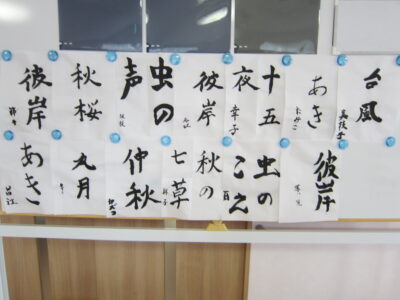 台風
あき
十五
夜
幸子
彼岸
虫の
声
秋桜
彼岸
彼岸
虫の
こえ
秋の
七草
仲秋
九月
あき